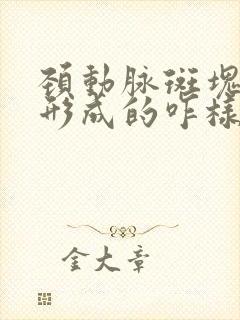 頚動脉斑塊
形成的咋樣
金大章